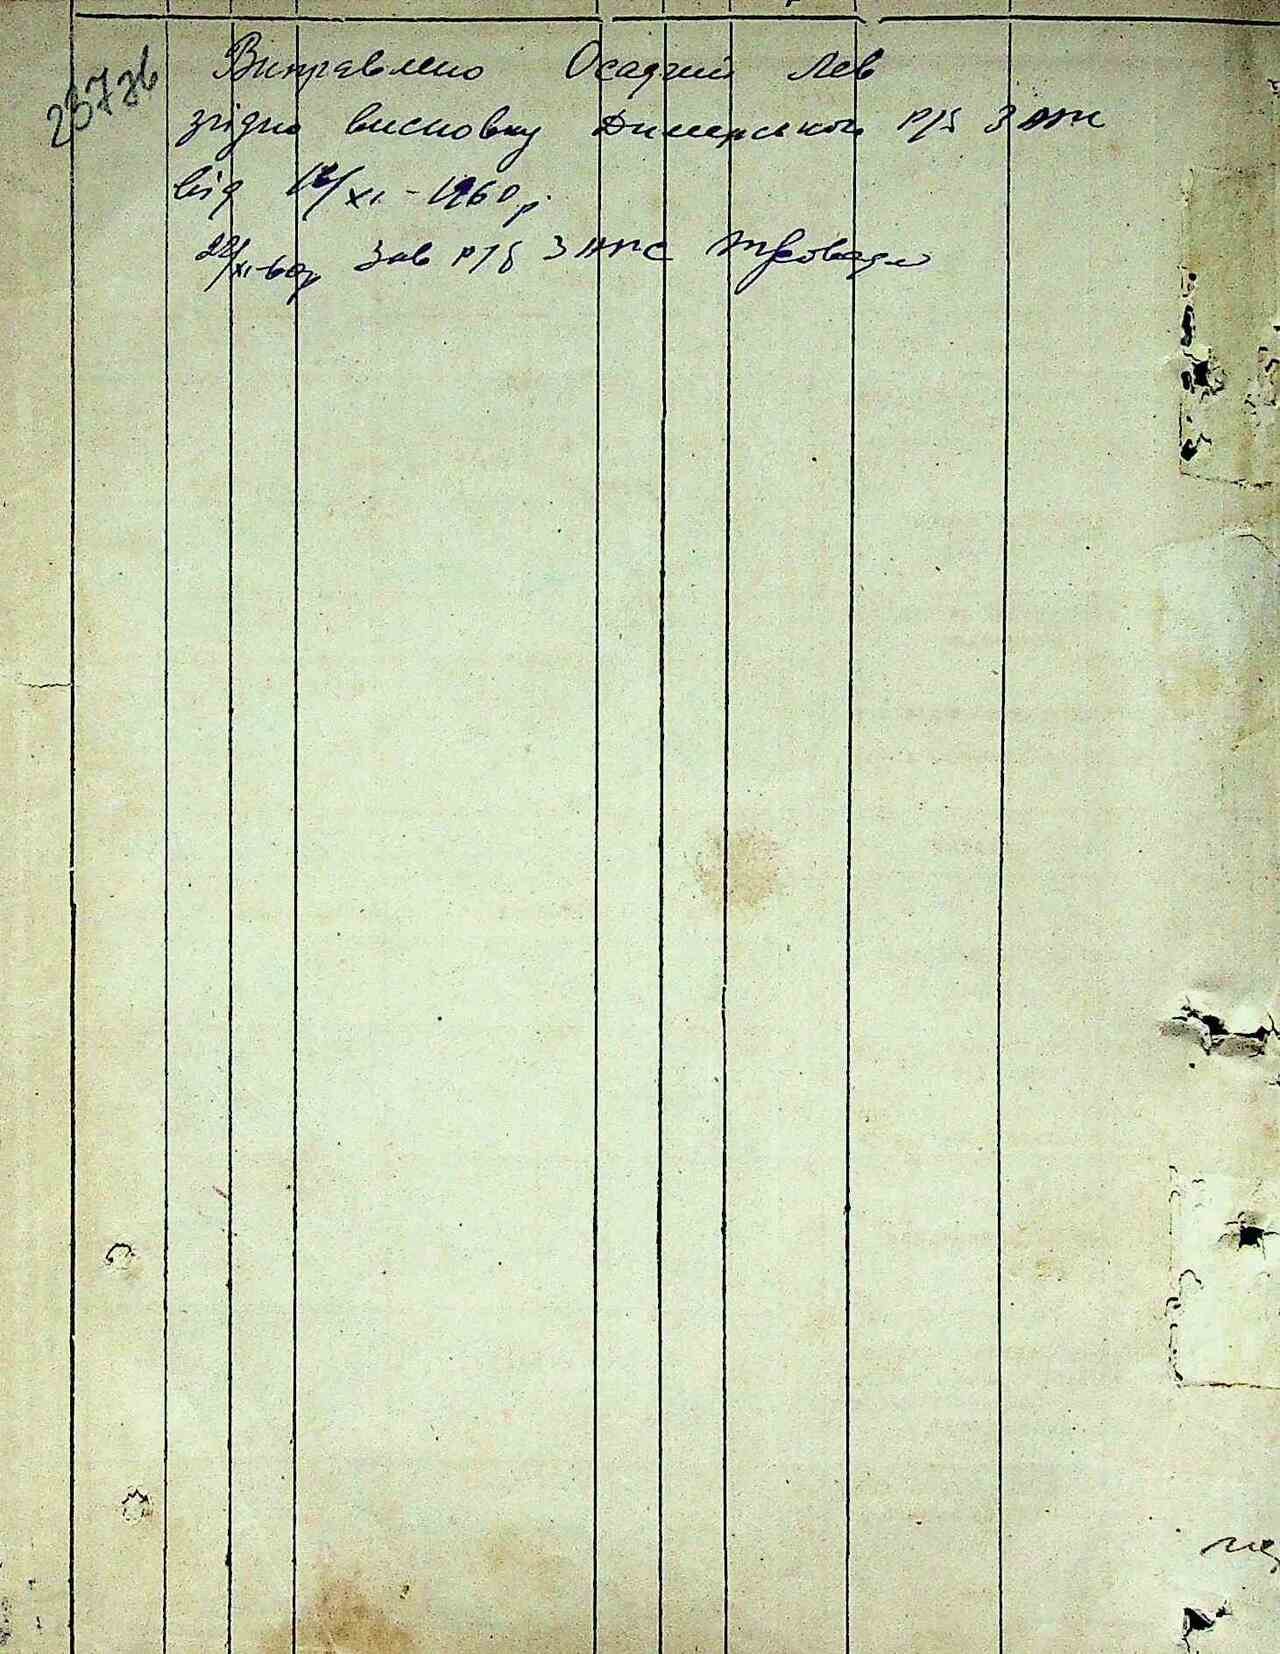 237 зв
Виправлено Осадчий Лев
згідно висновку Димерського р/б ЗАГС
від 12/XI - 1960 р.
22/XI-60р Зав р/б ЗАГС